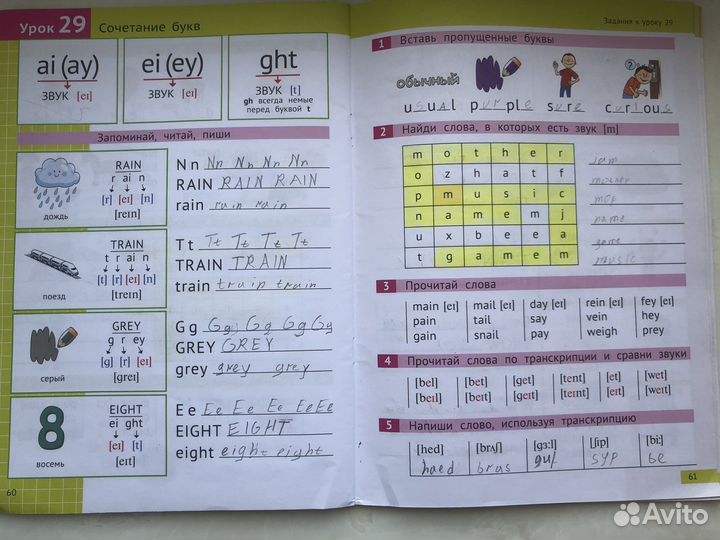 Урок 29 Сочетание букв
ai (ay)
ЗВУК [eɪ]
ei (ey)
ЗВУК [eɪ]
ght
ЗВУК [t]
gh всегда немые
перед буквой t
Запоминай, читай, пиши
дождь
RAIN
r ai n
[r] [eɪ] [n]
[reɪn]
N n Nn Nn Nn Nn
RAIN RAIN RAIN
rain rain rain
поезд
TRAIN
t r ai n
[t] [r] [eɪ] [n]
[treɪn]
T t Tt Tt Tt Tt
TRAIN TRAIN
train train train
серый
GREY
g r ey
[g] [r] [eɪ]
[greɪ]
G g Gg Gg Gg Gg
GREY GREY
grey grey grey
8
восемь
EIGHT
ei ght
[eɪ] [t]
[eɪt]
E e Ee Ee Ee EeEe
EIGHT EIGHT
eight eight eight
60
Задания к уроку 29
1 Вставь пропущенные буквы
обычный
usual purple sure curious
2 Найди слова, в которых есть звук [m]
m o t h e r
o z h a t f
p m u s i c
n a m e m j
u x b e e a
t g a m e m
jam
mother
mop
name
game
music
3 Прочитай слова
main [eɪ] mail [eɪ] day [eɪ] rein [eɪ] fey [eɪ]
pain tail say vein hey
gain snail pay weigh prey
4 Прочитай слова по транскрипции и сравни звуки
[bel] [bet] [get] [tent] [et] [wet]
[beɪl] [beɪt] [geɪt] [teɪnt] [eɪt] [weɪt]
5 Напиши слово, используя транскрипцию
[hed] [brʌʃ] [gɜ:l] [ʃip] [bi:]
haed bras gul syp be
61
Avito